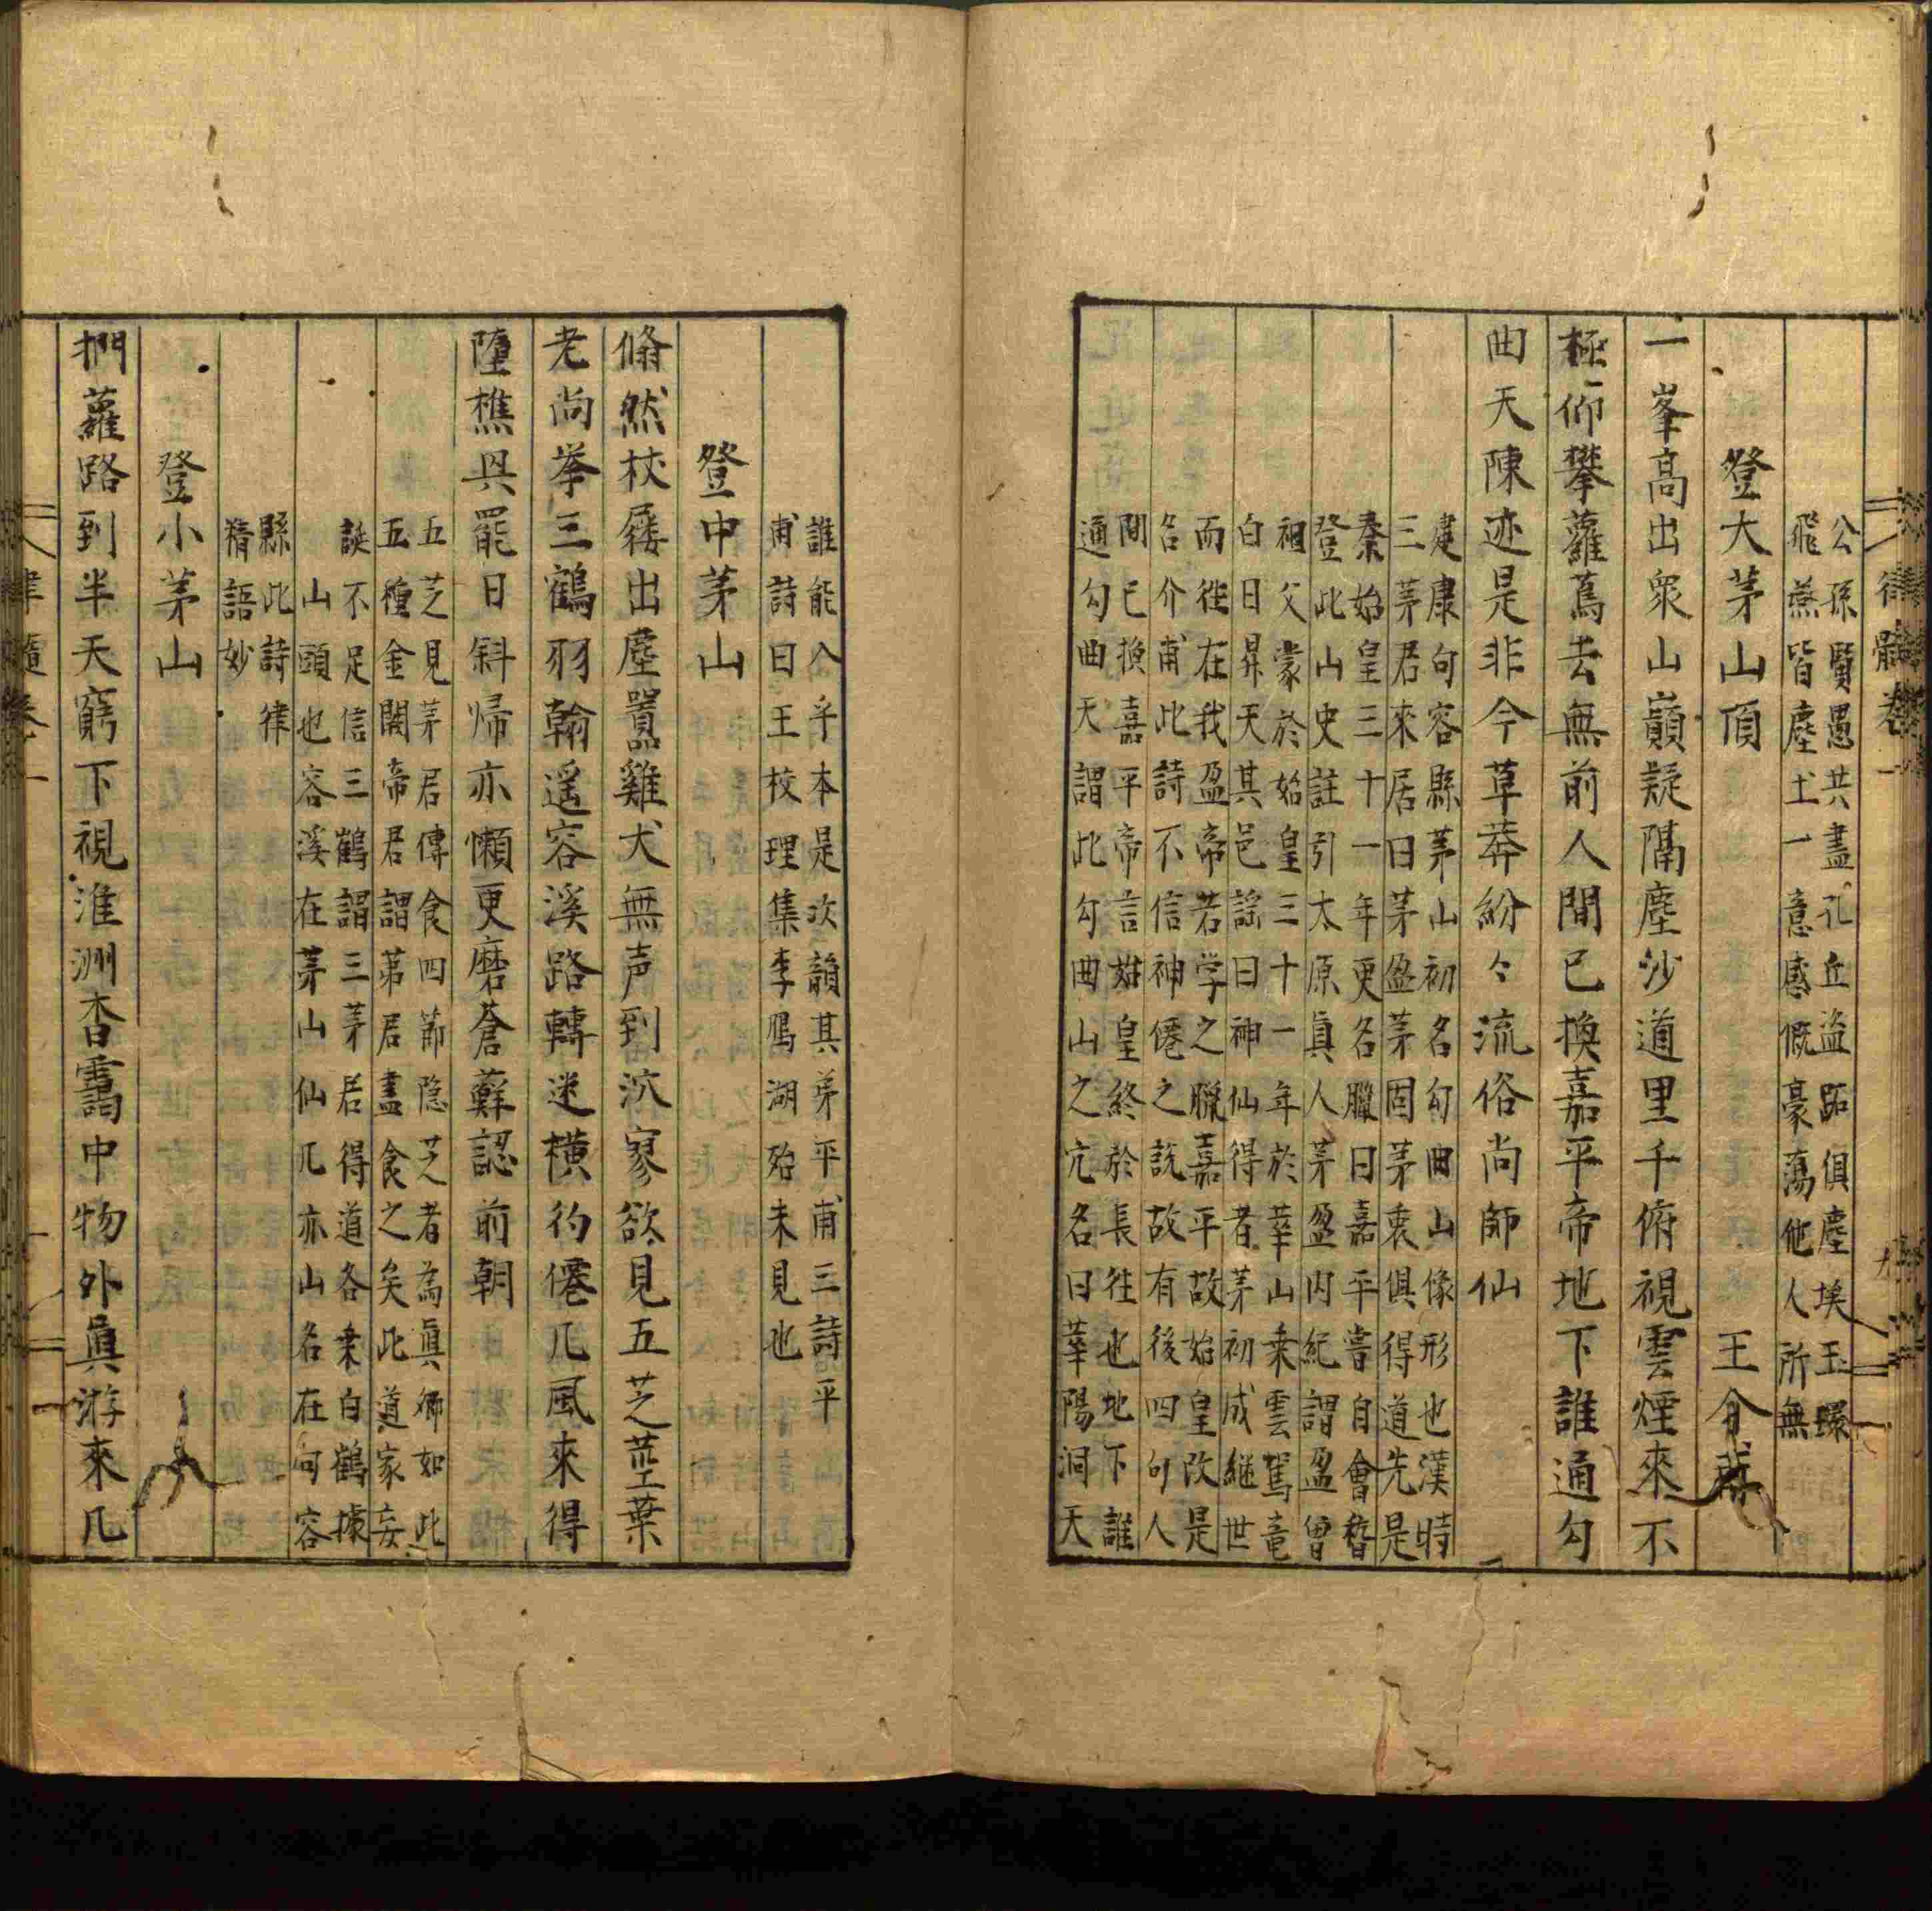 律髓卷一
公孫賢愚共盡孔丘盜跖俱塵埃玉環
飛燕皆塵土一意感慨豪蕩他人所無
登大茅山頂 王介甫
一峯高出衆山巔疑隔塵沙道里千俯視雲煙來不
極仰攀蘿蔦去無前人間已換嘉平帝地下誰通勾
曲天陳迹是非今草莽紛々流俗尚師仙
建康句容縣茅山初名勾曲山像形也漢時
三茅君來居曰茅盈茅固茅衷俱得道先是
秦始皇三十一年更名臘曰嘉平嘗自會稽
登此山史註引太原真人茅盈内紀謂盈曾
祖父蒙於始皇三十一年於華山乗雲駕竜
白日昇天其邑謡曰神仙得者茅初成継世
而徃在我盈帝若学之臘嘉平故始皇改是
名介甫此詩不信神僊之說故有後四句人
間已換嘉平帝言始皇終於長徃也地下誰
通勾曲天謂此勾曲山之亢名曰華陽洞天
誰能入乎本是次韻其弟平甫三詩平
甫詩曰王校理集李鴈湖殆未見也
登中茅山
翛然杖屨出塵囂雞犬無声到泬寥欲見五芝莖葉
老尚挙三鶴羽翰遥容溪路轉迷横彴僊几風來得
墮樵興罷日斜帰亦懶更磨蒼蘚認前朝
五芝見茅居傳食四節隠芝者為真卿如此
五種金闕帝君謂第居盡食之矣此道家妄
誕不足信三鶴謂三茅居得道各乗白鶴據
山頭也容溪在茅山仙兀亦山名在句容
縣此詩律
精語妙
登小茅山
捫蘿路到半天窮下視淮洲杳靄中物外真游來几
律髓卷一